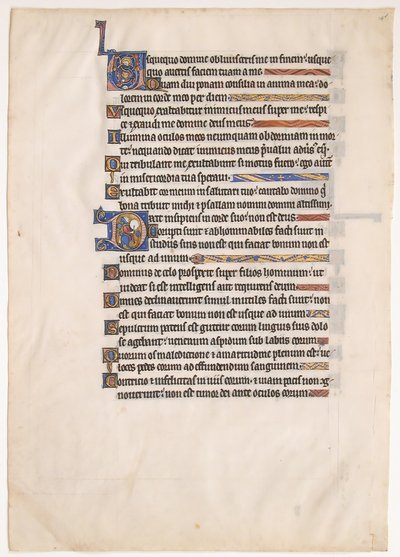 Usquequo domine obliuisceris me in finem: usque
quo auertis faciem tuam a me.
Quam diu ponam consilia in anima mea: do
lorem in corde meo per diem.
Usquequo exaltabitur inimicus meus super me: respi
ce et exaudi me domine deus meus.
Illumina oculos meos ne umquam obdormiam in mor
te: nequando dicat inimicus meus
Qui tribulant me exultabunt si motus fuero: ego autem
in misericordia tua speraui.
Exultabit cor meum in salutari tuo: cantabo domino
bona tribuit michi et psallam nomini domini altissimi.
Dixit insipiens in corde suo: non est deus.
Corrupti sunt et abhominabiles facti sunt in
studiis suis non est qui faciat bonum non est
usque ad unum.
Dominus de celo prospexit super filios hominum: ut
uideat si est intelligens aut requirens deum.
Omnes declinauerunt simul inutiles facti sunt: non
est qui faciat bonum non est usque ad unum.
Sepulcrum patens est guttur eorum linguis suis dolo
se agebant: uenenum aspidum sub labiis eorum.
Quorum os maledictione et amaritudine plenum est: ue
loces pedes eorum ad effundendum sanguinem.
Contricio et infelicitas in uiis eorum et uiam pacis non
nouerunt: non est timor dei ante oculos eorum.